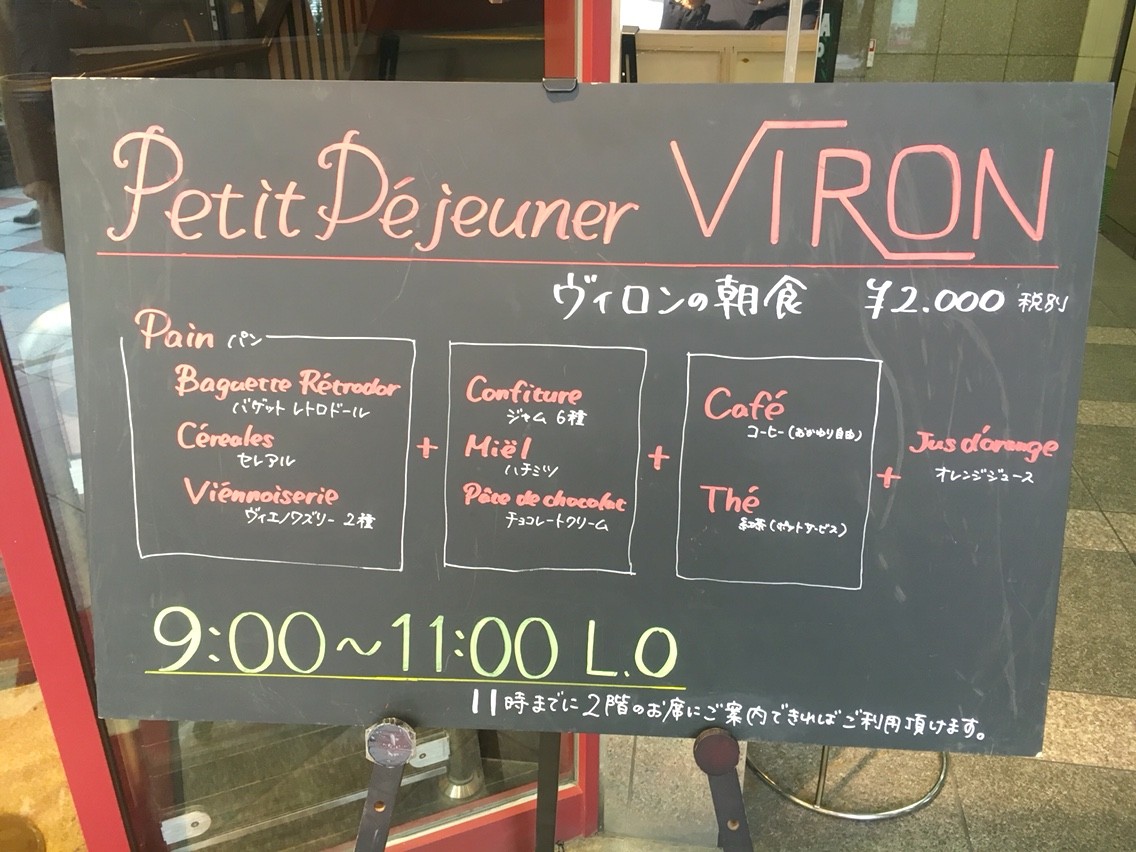 Petit Déjeuner VIRON
ヴィロンの朝食 ¥2.000 税別
Pain パン
Baguette Rétrodor
バゲット レトロドール
Céreales
セレアル
Viénnoiserie
ヴィエノワズリー 2種
+
Confiture
ジャム 6種
Miël
ハチミツ
Pâte de chocolat
チョコレートクリーム
+
Café
コーヒー(おかわり自由)
Thé
紅茶(ポットサービス)
+
Jus d'orange
オレンジジュース
9:00~11:00 L.O
11時までに2階のお席にご案内できればご利用頂けます。